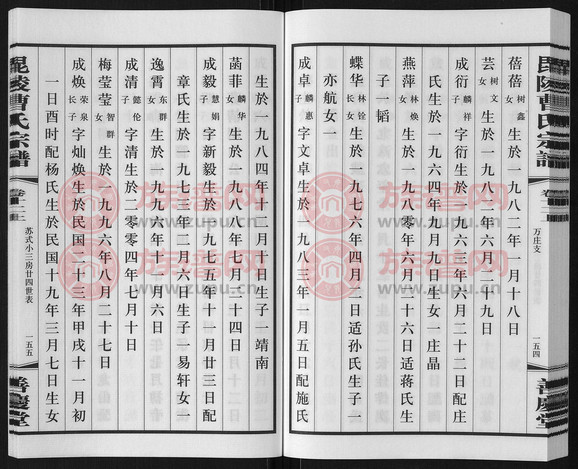 毘陵曹氏宗譜
卷十二
万庄支
一五四
善慶堂
蓓蓓 树鑫女 生於一九八二年一月十八日
芸 树文女 生於一九八一年六月二十九日
成衍 麟祥子 字衍生於一九六四年六月二十二日配庄
氏生於一九六四年九月九日生女一庄晶
燕萍 林焕女 生於一九八零年六月二十六日适蒋氏生
子一韬
蝶华 林铨长女 生於一九七六年四月二日适孙氏生子一
亦航女一
成卓 麟惠子 字文卓生於一九八三年一月五日配施氏
生於一九八四年十二月十日生子一靖南
菡菲 麟华女 生於一九八八年七月二十四日
成毅 慧娟子 字新毅生於一九七五年十一月廿三日配
章氏生於一九七三年二月六日生子一易轩女一
逸霄 东群女 生於一九九一年十二月六日
成清 懿伦子 字清生於二零零四年七月十日
梅莹莹 智群女 生於一九八八年八月二十七日
成焕 荣泉长子 字灿焕生於民国二十三年甲戌十一月初
一日酉时配杨氏生於民国十九年三月七日生女
毘陵曹氏宗譜
卷十二
苏式小三房廿四世表
一五五
善慶堂
族譜网
www.zupu.cn
族譜网
www.zupu.cn